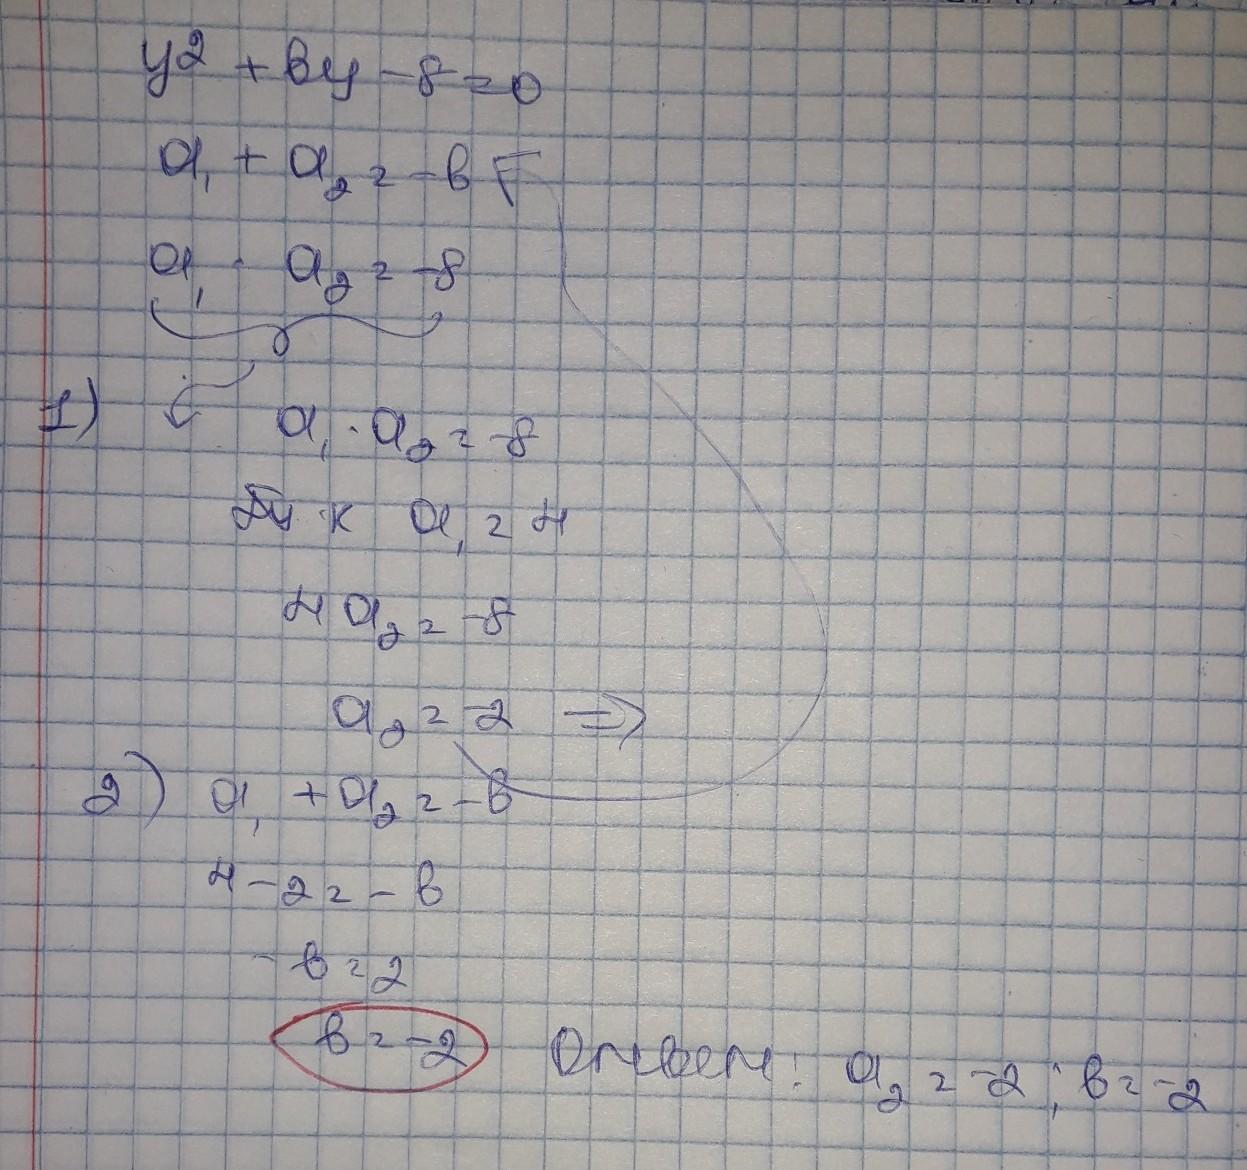 y² + by - 8 = 0
a₁ + a₂ = -b
a₁ · a₂ = -8
1) a₁ · a₂ = -8
к a₁ = 4
4a₂ = -8
a₂ = -2 ⇒
2) a₁ + a₂ = -b
4 - 2 = - b
- b = 2
b = -2
Ответ: a₂ = -2 ; b = -2